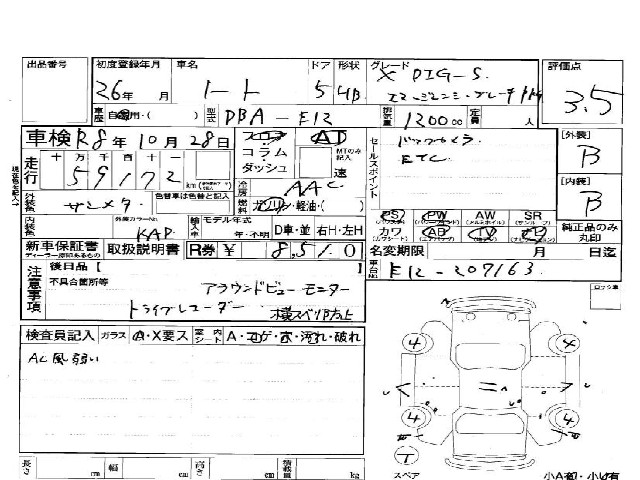 出品番号 初度登録年月 車名 ドア 形状 グレード 評価点
26年 月 ノート 5 HB X DIG-S 3.5
車歴 自家用・( ) 型式 DBA-E12 排気量 1200cc 定員 人
車検 R8年10月28日 フロア AT セールスポイント バックカメラ [外装] B
走行 十万千百十一 コラム MTのみ記入
59172 km ダッシュ 速 ETC [内装] B
外装色 サンメタ 色替車は色替と記入 冷房 AAC
燃料 ガソリン・軽油・( ) PS PW AW SR 純正品のみ丸印
内装色 外装カラーNo. KAD 輸入車 モデル年式 年・不明 D車・並 右H・左H カワ AB TV
新車保証書 取扱説明書 R券 ¥ 8,510 名変期限 月 日迄
ディーラー捺印あるもの
注意事項 後日品【 】 車台No. E12-207163
不具合箇所等 アラウンドビューモニター
ドライブレコーダー 横スベリ防止
検査員記入 ガラス A・X要ス 室内シート A・コゲ・穴・汚れ・破れ
AC風弱い
4 4
4 4
スペア
長さ cm 幅 cm 高さ cm 積載量 kg
小A有